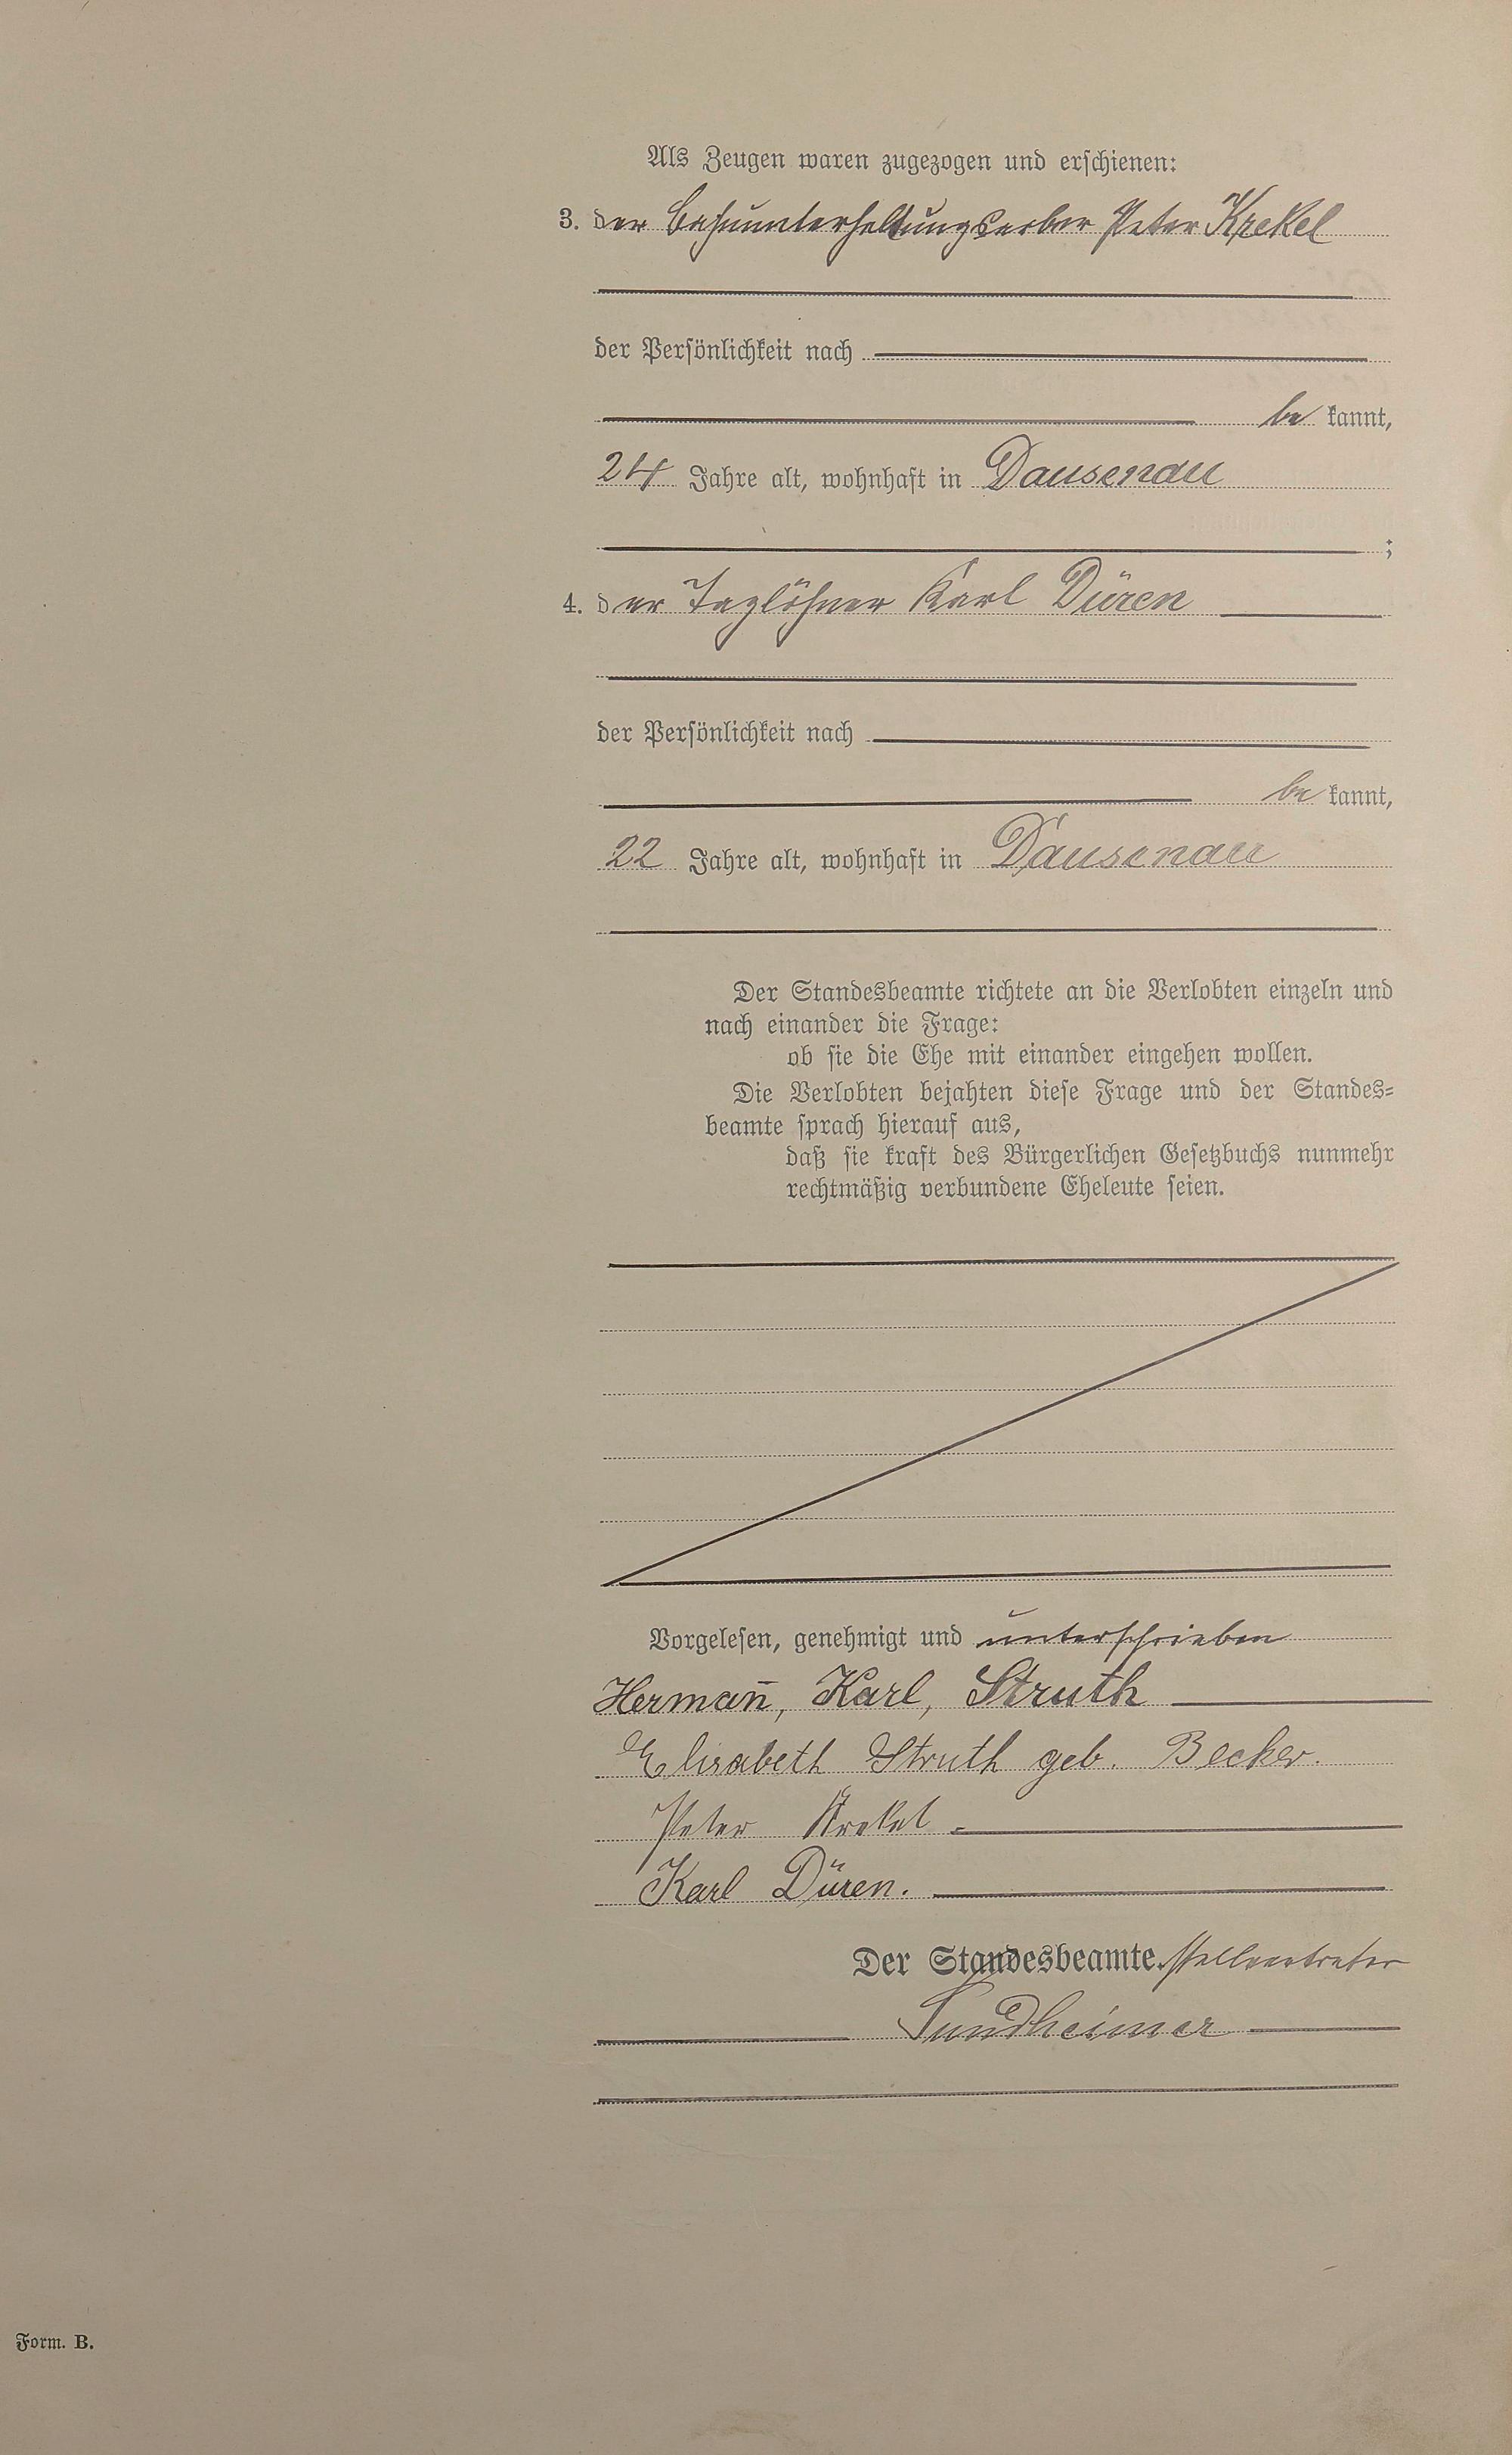 Als Zeugen waren zugezogen und erschienen:
3. der Bahnunterhaltungsarber Peter Krekel
der Persönlichkeit nach
be kannt,
24 Jahre alt, wohnhaft in Dausenau
;
4. der Taglöhner Karl Düren
der Persönlichkeit nach
be kannt,
22 Jahre alt, wohnhaft in Dausenau
Der Standesbeamte richtete an die Verlobten einzeln und
nach einander die Frage:
ob sie die Ehe mit einander eingehen wollen.
Die Verlobten bejahten diese Frage und der Standes-
beamte sprach hierauf aus,
daß sie kraft des Bürgerlichen Gesetzbuchs nunmehr
rechtmäßig verbundene Eheleute seien.
Vorgelesen, genehmigt und unterschrieben
Herman̅, Karl, Struth
Elisabeth Struth geb. Becker.
Peter Krekel
Karl Düren.
Der Standesbeamte. stellvertreter
Sundheimer
Form. B.